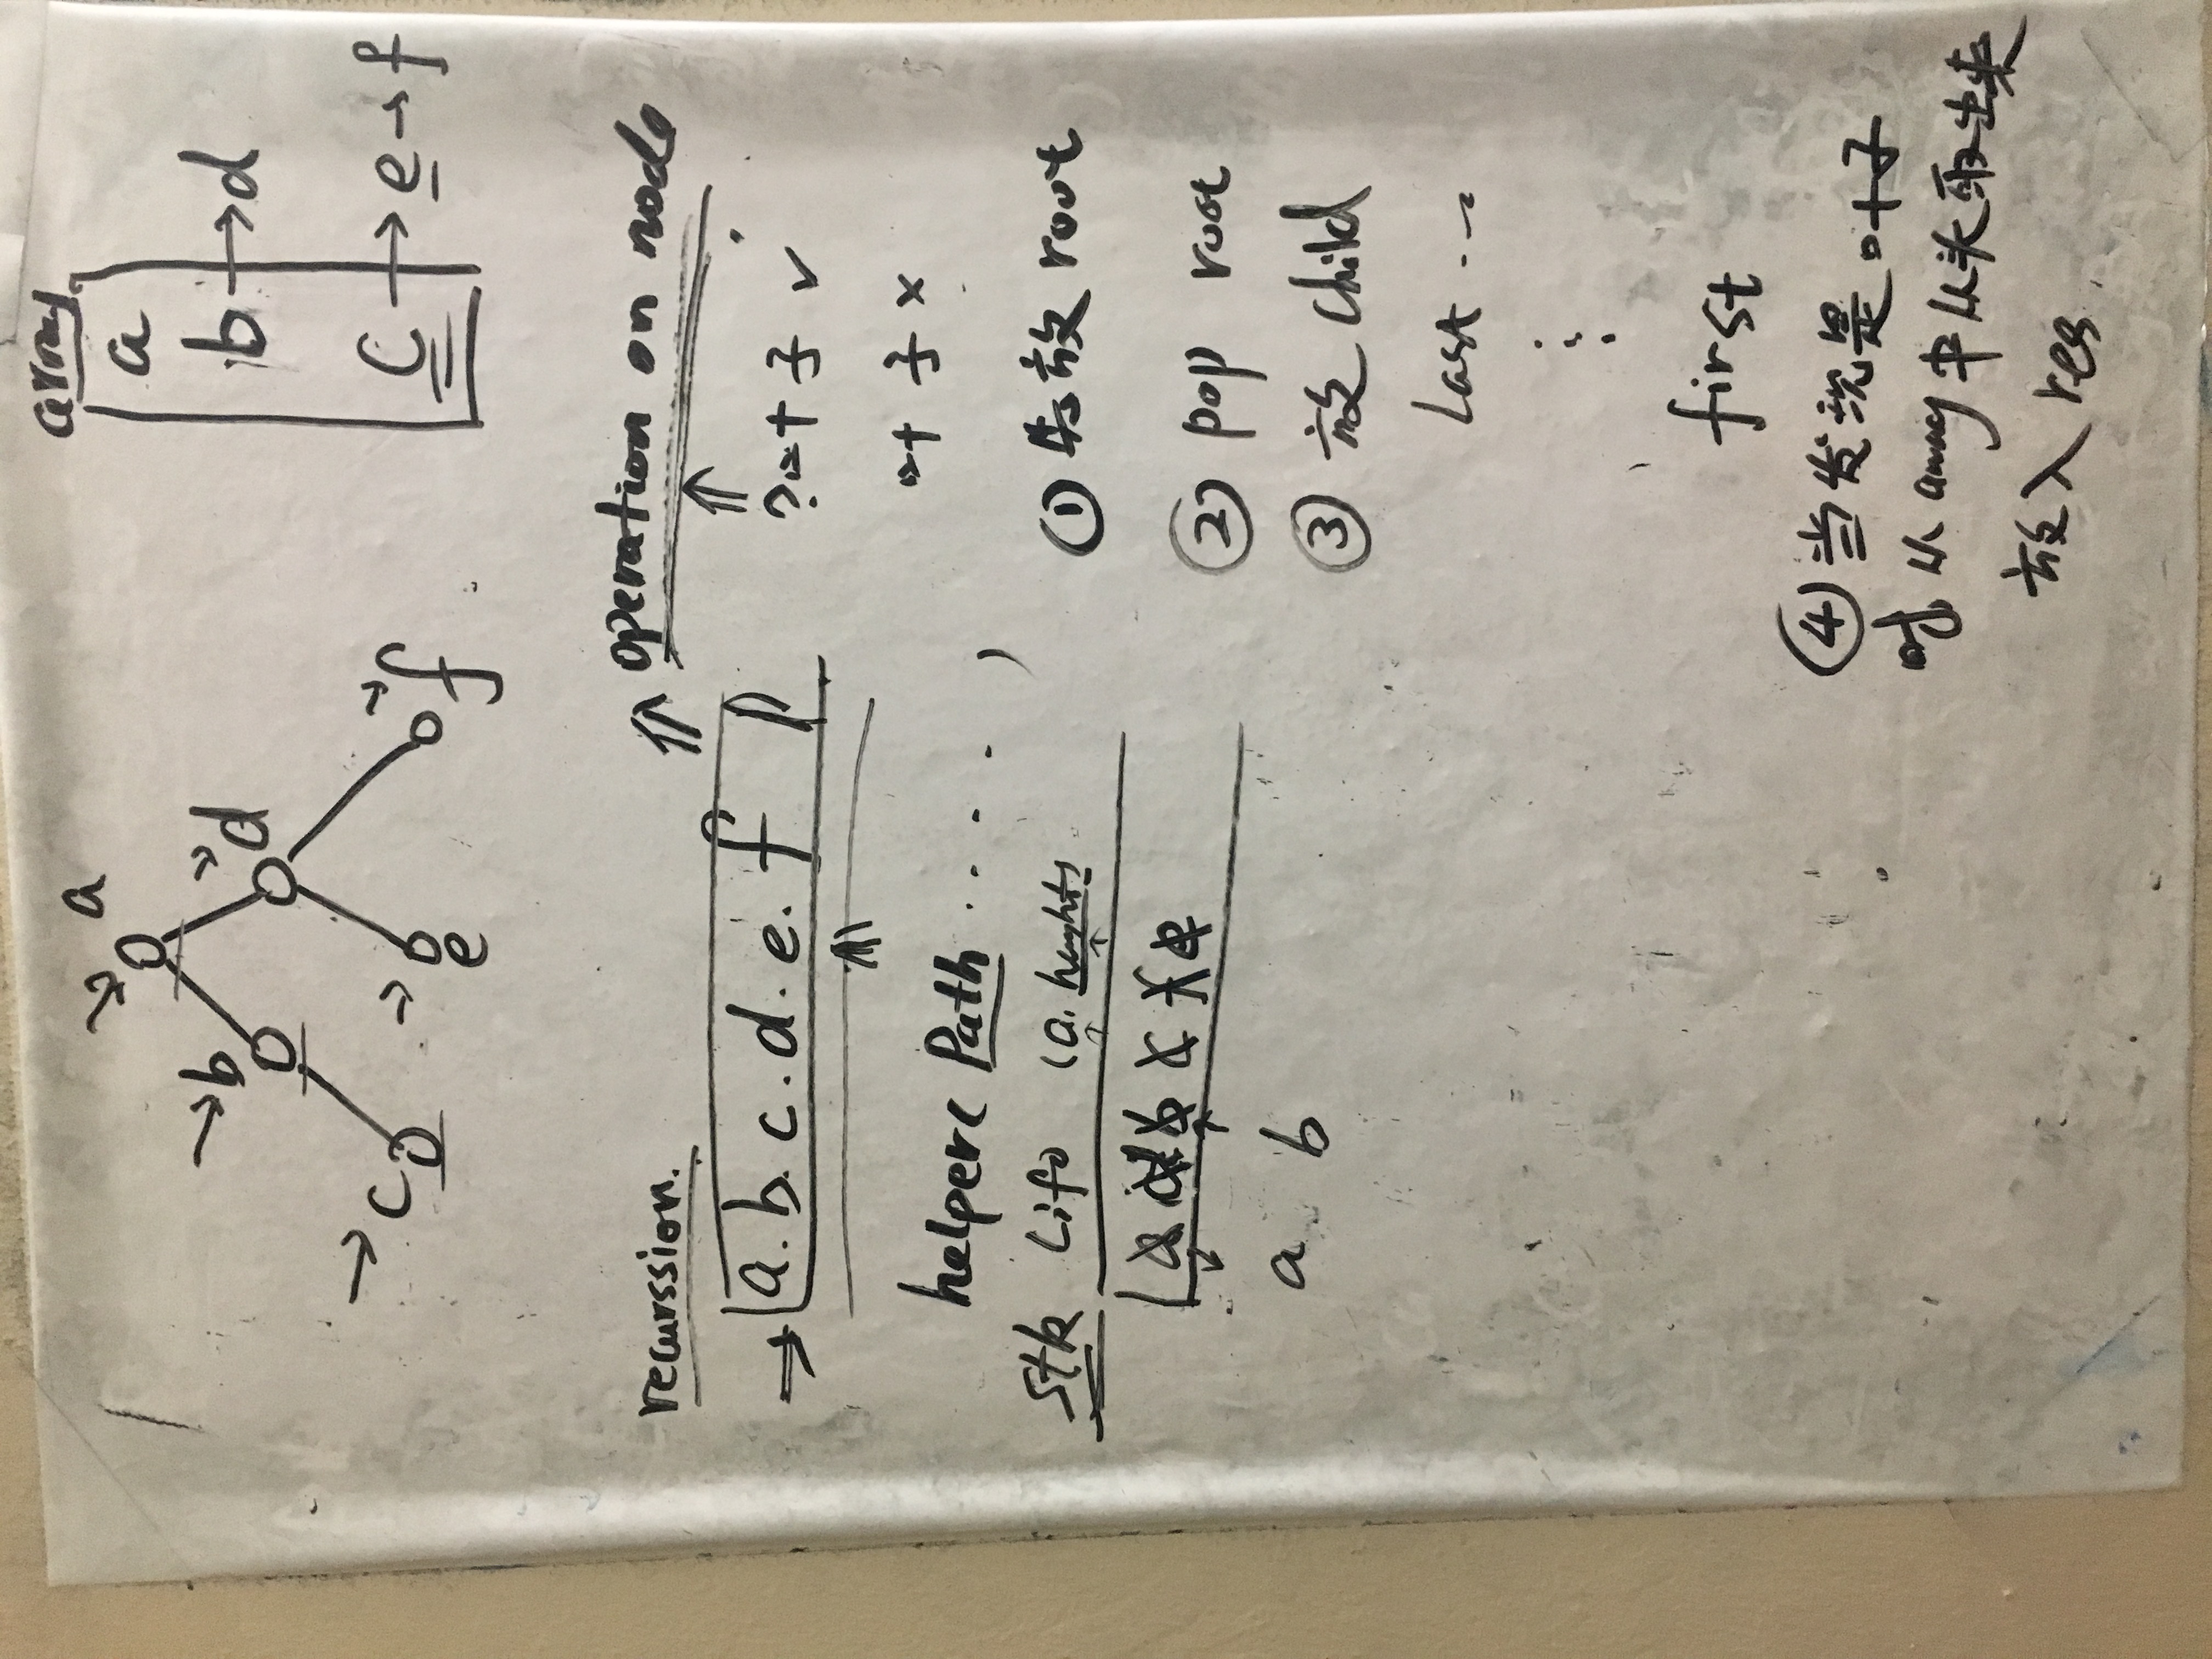 a
b
d
c
e
f
array
a
b → d
c → e → f
recurssion.
operation on node
a. b. c. d. e. f
?叶子 ✓
叶子 ×
helper( Path . . . . )
stk Lifo (a. height)
a d b c f e
a b
① 先放 root
② pop root
③ 放 child
Last ...
first
④ 当发现是叶子
时 从 array 中从头取出来
放入 res.